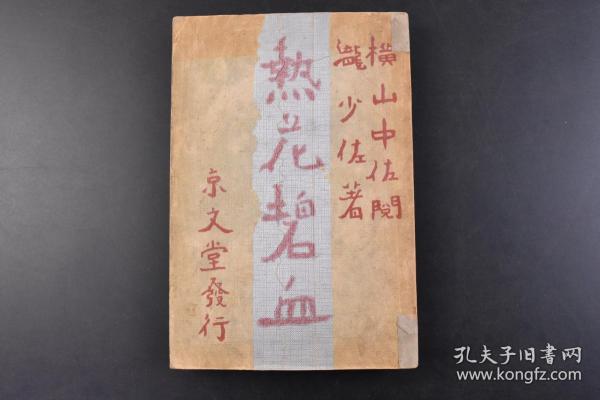 横山中佐閲
瀧少佐著
熱花碧血
京文堂發行
孔夫子旧书网
www.kongfz.com